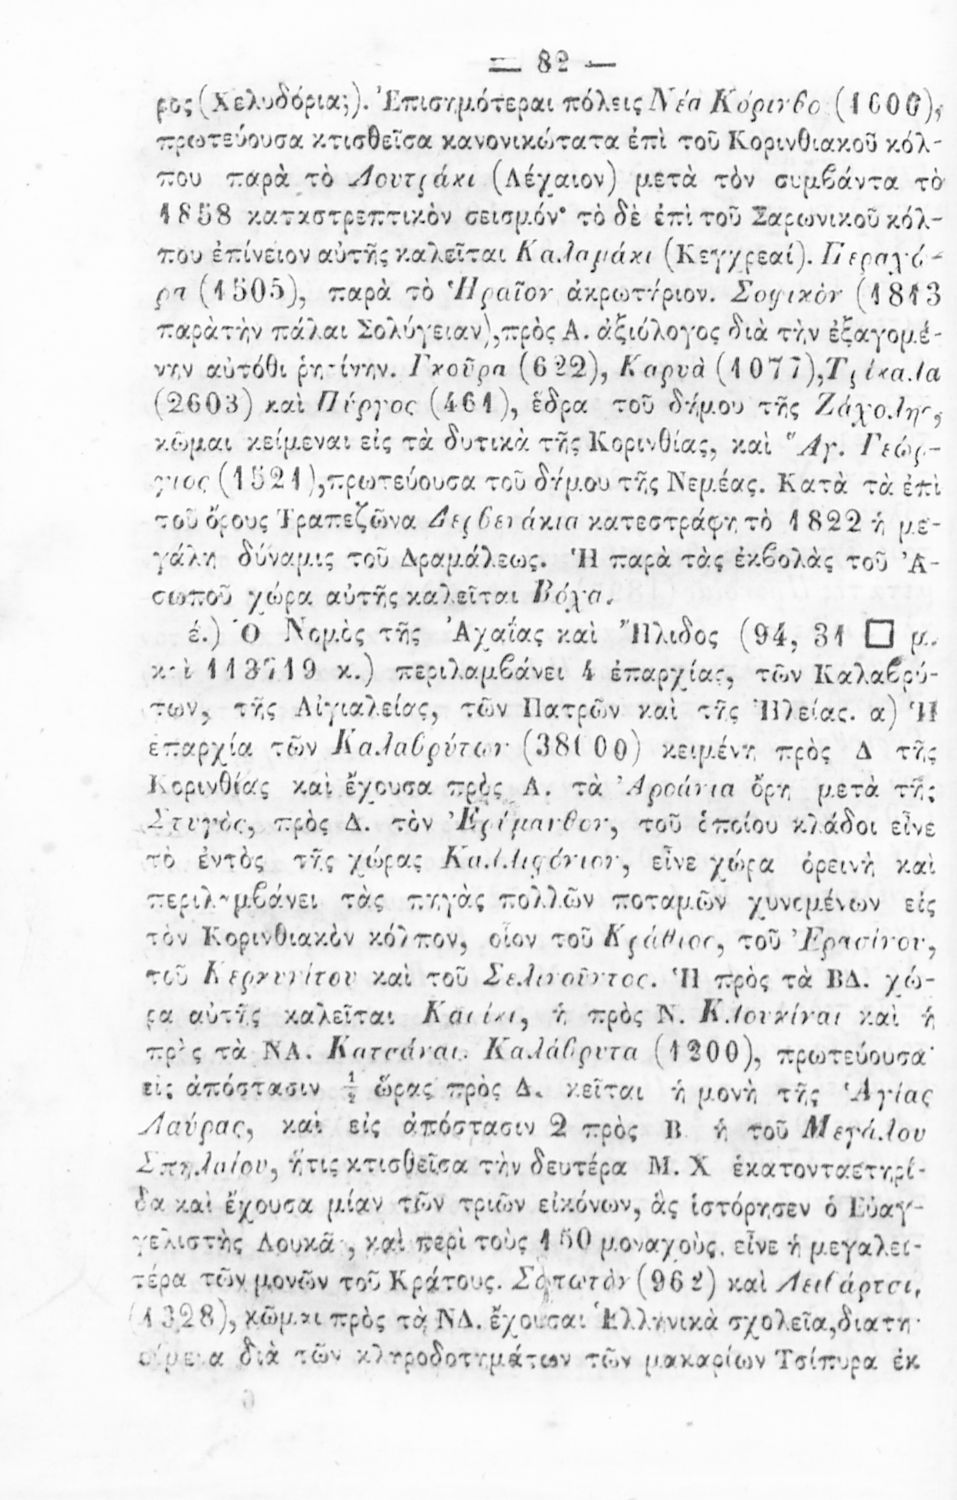 — 82 —
ρος (Χελυδόρια;). Ἐπισημότεραι πόλεις Νέα Κόρινθο (1600),
πρωτεύουσα κτισθεῖσα κανονικώτατα ἐπὶ τοῦ Κορινθιακοῦ κόλ-
που παρὰ τὸ Λουτράκι (Λέχαιον) μετὰ τὸν συμβάντα τὸ
1858 καταστρεπτικὸν σεισμόν· τὸ δὲ ἐπὶ τοῦ Σαρωνικοῦ κόλ-
που ἐπίνειον αὐτῆς καλεῖται Καλαμάκι (Κεγχρεαί). Περαχώ-
ρα (1505), παρὰ τὸ Ἡραῖον ἀκρωτήριον. Σοφικὸν (1813
παρὰτὴν πάλαι Σολύγειαν), πρὸς Α. ἀξιόλογος διὰ τὴν ἐξαγομέ-
νην αὐτόθι ῥητίνην. Γκοῦρα (622), Καρυὰ (1077), Τρίκαλα
(2603) καὶ Πύργος (461), ἕδρα τοῦ δήμου τῆς Ζάχολης,
κῶμαι κείμεναι εἰς τὰ δυτικὰ τῆς Κορινθίας, καὶ Ἅγ. Γεώρ-
γιος (1521), πρωτεύουσα τοῦ δήμου τῆς Νεμέας. Κατὰ τὰ ἐπὶ
τοῦ ὄρους Τραπεζῶνα Δερβενάκια κατεστράφη τὸ 1822 ἡ με-
γάλη δύναμις τοῦ Δραμάλεως. Ἡ παρὰ τὰς ἐκβολὰς τοῦ Ἀ-
σωποῦ χώρα αὐτῆς καλεῖται Βόχα.
έ.) Ὁ Νομὸς τῆς Ἀχαΐας καὶ Ἤλιδος (94, 31 □ μ.
καὶ 113719 κ.) περιλαμβάνει 4 ἐπαρχίας, τῶν Καλαβρύ-
των, τῆς Αἰγιαλείας, τῶν Πατρῶν καὶ τῆς Ἠλείας. α) Ἡ
ἐπαρχία τῶν Καλαβρύτων (38100) κειμένη πρὸς Δ τῆς
Κορινθίας καὶ ἔχουσα πρὸς Α. τὰ Ἀροάνια ὄρη μετὰ τῆς
Στυγὸς, πρὸς Δ. τὸν Ἐρύμανθον, τοῦ ὁποίου κλάδοι εἶνε
τὸ ἐντὸς τῆς χώρας Καλλιφόνιον, εἶνε χώρα ὀρεινὴ καὶ
περιλαμβάνει τὰς πηγὰς πολλῶν ποταμῶν χυνομένων εἰς
τὸν Κορινθιακὸν κόλπον, οἷον τοῦ Κράθιος, τοῦ Ἐρασίνου,
τοῦ Κερκυνίτου καὶ τοῦ Σελινοῦντος. Ἡ πρὸς τὰ ΒΔ. χώ-
ρα αὐτῆς καλεῖται, ἡ πρὸς Ν. Κλουκίναι καὶ ἡ
πρὸς τὰ ΝΑ. Κατσάναι. Καλάβρυτα (1200), πρωτεύουσα·
εἰς ἀπόστασιν ½ ὥρας πρὸς Δ. κεῖται ἡ μονὴ τῆς Ἁγίας
Λαύρας, καὶ εἰς ἀπόστασιν 2 πρὸς Β ἡ τοῦ Μεγάλου
Σπηλαίου, ἥτις κτισθεῖσα τὴν δευτέρα Μ. Χ ἑκατονταετηρί-
δα καὶ ἔχουσα μίαν τῶν τριῶν εἰκόνων, ἃς ἱστόρησεν ὁ Εὐαγ-
γελιστὴς Λουκᾶ, καὶ περὶ τοὺς 150 μοναχοὺς, εἶνε ἡ μεγαλει-
τέρα τῶν μονῶν τοῦ Κράτους. Σοπωτὸν (962) καὶ Λειβάρτσι,
(1328), κῶμαι πρὸς τὰ ΝΔ. ἔχουσαι Ἑλληνικὰ σχολεῖα, διατη-
ούμενα διὰ τῶν κληροδοτημάτων τῶν μακαρίων Τσίπυρα ἐκ